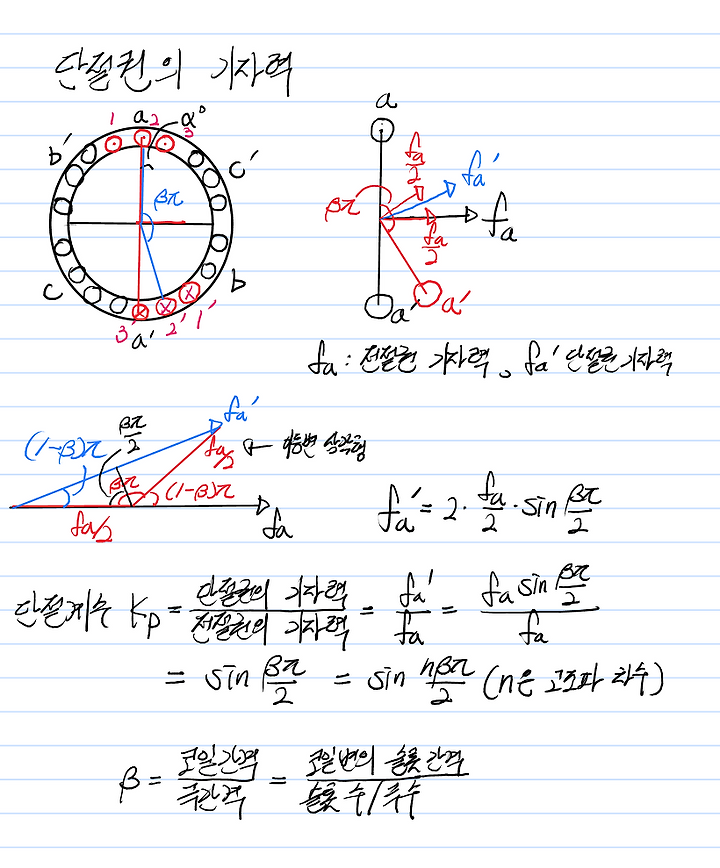 단절권의 기자력
1 a 2 α° 3
b′ c′
βπ
c b
3′ a′ 2′ 1′
a
fa/2 fa′
βπ fa
fa/2
a′ a′
fa : 전절권 기자력, fa′ 단절권 기자력
fa′
βπ/2 fa/2 ← 이등변 삼각형
(1-β)π βπ (1-β)π
fa/2 fa
fa′ = 2 · fa/2 · sin βπ/2
단절계수 Kp = 단절권의 기자력/전절권의 기자력 = fa′/fa = fa sin βπ/2 / fa
= sin βπ/2 = sin nβπ/2 (n은 고조파 차수)
β = 코일간격/극간격 = 코일변의 슬롯간격/슬롯수/극수